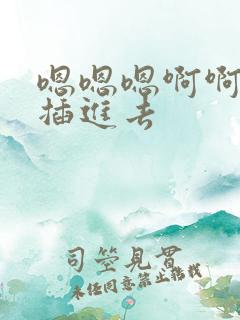 嗯嗯嗯啊啊
插进去
司空见贯
未经同意禁止转载